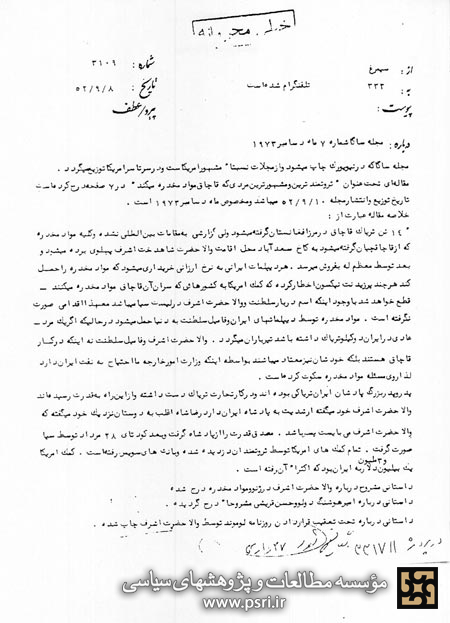 خیلی محرمانه
از : سیمرغ
شماره : ۳۱۰۹
به : ۳۳۲ تلفنگرام شده‌است
تاریخ : ۵۲/۹/۸
پیوست :
پیرو/عطف
درباره : مجله ساگا شماره ۷ ماه دسامبر ۱۹۷۳
مجله ساگا که در نیویورک چاپ میشود و از مجلات نسبتاً مشهور امریکاست و در سرتاسر امریکا توزیع میگردد .
مقاله‌ای تحت عنوان " ثروتمند ترین و مشهورترین مردی که قاچاق مواد مخدره میکند " در ۷ صفحه درج کرده‌است
تاریخ توزیع و انتشار مجله ۵۲/۹/۱۰ میباشد و مخصوص ماه دسامبر ۱۹۷۳ است .
خلاصه مقاله عبارت از :
" ۱۴ تن تریاک قاچاق در مرز افغانستان گرفته میشود ولی گزارشی به مقامات بین‌المللی نشده و کلیه مواد مخدره که
از قاچاقچیان گرفته میشود به کاخ سعدآباد محل اقامت والا حضرت شاهدخت اشرف پهلوی برده میشود و
بعد توسط معظم له بفروش میرسد . هر دیپلمات ایرانی به نرخ ارزانی خریداری میشود که مواد مخدره را حمل
کند هرچند پرزیدنت نیکسون اخطار کرده که کمک امریکا به کشورهائی که سران آن قاچاق مواد مخدره میکنند –
قطع خواهد شد با وجود اینکه اسم دربار سلطنت و والا حضرت اشرف در لیست سیا میباشد معهذا اقدامی صورت
نگرفته است . مواد مخدره توسط دیپلماتهای ایران و فامیل سلطنت به دنیا حمل میشود در حالیکه اگر یک مرد –
عادی در ایران دو کیلو تریاک داشته باشد تیرباران میگردد . والا حضرت اشرف و فامیل سلطنت نه اینکه در کار
قاچاق هستند بلکه خودشان نیز معتاد میباشند بواسطه اینکه وزارت امور خارجه ما احتیاج به نفت ایران دارد
لذا روی مسئله مواد مخدره سکوت کرده‌است .
پدر و پدر بزرگ پادشاه ایران تریاکی بوده‌اند و در کار تجارت تریاک دست داشته و از این راه به قدرت رسیده‌اند
والا حضرت اشرف خود میگفته ارشدیت به پادشاه ایران دارد رضا شاه اغلب به دوستان نزدیک خود میگفته که
والا حضرت اشرف می بایست پسر باشد . مصدق قدرت را از پادشاه گرفت و بعد کودتای ۲۸ مرداد توسط سیا
صورت گرفت . تمام کمک های امریکا توسط ثروتمندان دزدیده شده و ببانک های سویس رفته‌است . کمک امریکا
یک بیلیون دلار به ایران بود که اکثراً آن رفته است .
داستانی مشروح درباره والا حضرت اشرف در ژنو و مواد مخدره درج شده
داستانی درباره امیر هوشنگ دولو و حسن قریشی مشروحاً درج گردیده .
داستانی درباره تحت تعقیب قرار دادن روزنامه لوموند توسط والا حضرت اشرف چاپ شده .
مؤسسه مطالعات و پژوهشهای سیاسی
www.psri.ir